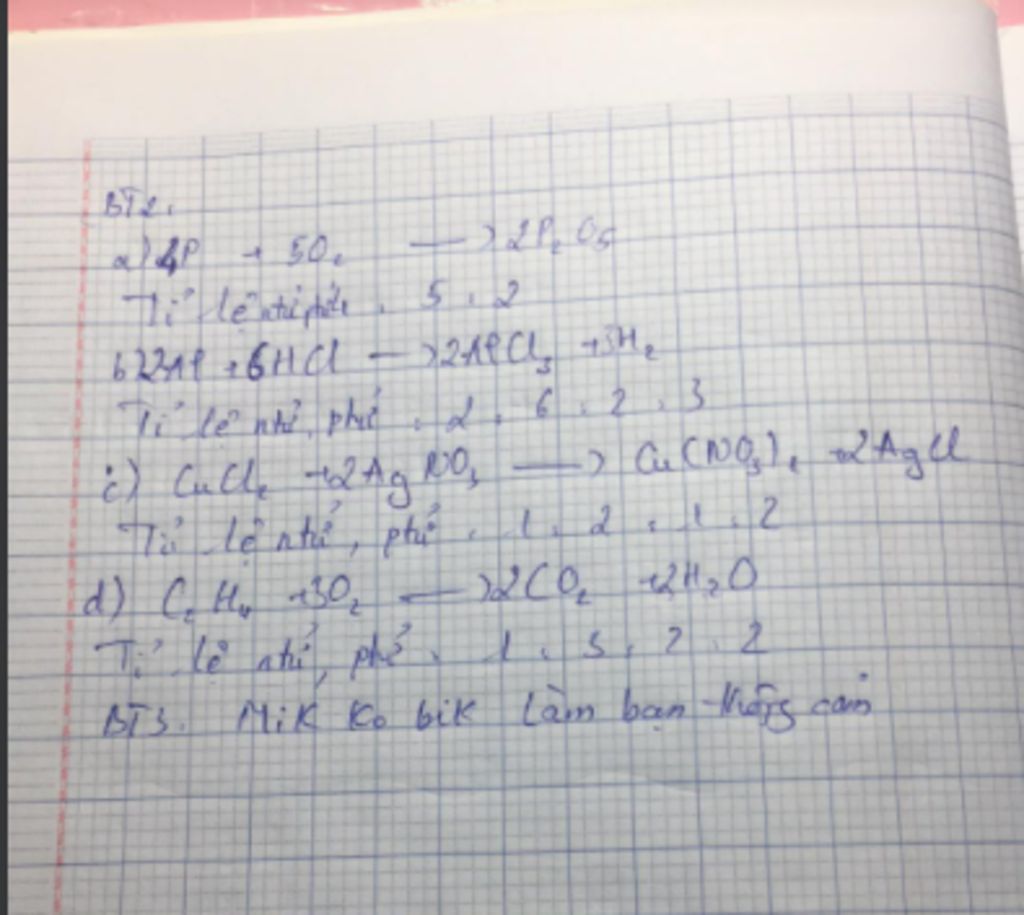 BT2.
a) 4P + 5O₂ —> 2P₂O5
Tỉ lệ : 5 : 2
b) 2Al + 6HCl —> 2AlCl₃ + 3H₂
Tỉ lệ ntử, phtử : 2 : 6 : 2 : 3
c) CuCl₂ + 2AgNO₃ —> Cu(NO₃)₂ + 2AgCl
Tỉ lệ ntử, phtử : 1 : 2 : 1 : 2
d) C₂H₄ + 3O₂ —> 2CO₂ + 2H₂O
Tỉ lệ ntử, phtử : 1 : 3 : 2 : 2
BT3. Mik ko bik làm bạn thông cảm